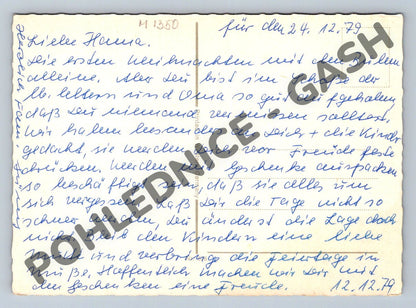 M 1380
für den 24.12.79
Liebes Hanna.
Die ersten Weihnachten mit den
alleine. Aber Du bist im der
lb. Eltern und Oma so gut aufgehoben,
daß Du niemand vermissen solltest.
Wir haben besonders an Dich + die Kinder
gedacht, sie werden Dich vor Freude feste
drücken. Werden mit Geschenke auspacken
so beschäftigt sein, daß sie alles um
sich vergessen. Daß Dir die Tage nicht so
schwer werden, Du änderst die Lage doch
nicht. Den Kindern eine liebe
und verbringe die Feiertage in
Muße. Hoffentlich machen wir Dir mit
den Geschenken eine Freude. 12.12.79
Herzlich
POHLEDNICE - GASH